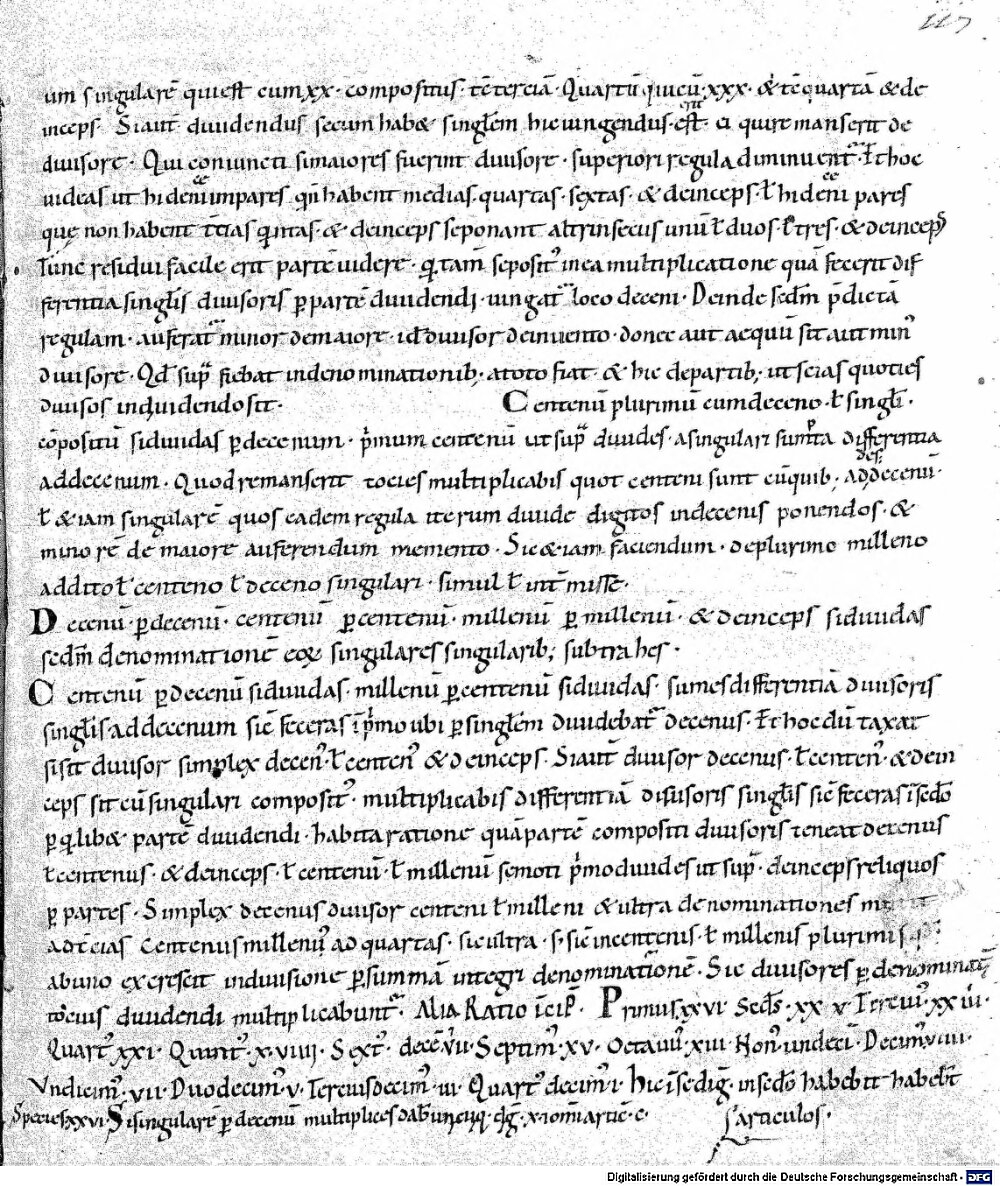 117
um singularē qui est cum xx · compositus · tēterciā · Quartū qui cū · xxx · & tēquartā & de
inceps · Siaut̄ diuidendus secum habæ singłem hic iungendus · est · ei qui remanserit de
diuisore · Qui coniuncti si maiores fuerint diuisore · superiori regula diminuent̄ · Et hoc
uideas ut hi deni impares qn̄ habent medias · quartas · sextas · & deinceps · ł hi deni pares
quę non habent tc̄ias quintas · & deinceps seponant altrinsecus unū ł duos · ł tres · & deinceps
Tunc residui facile erit partē uidere · sepositˀ in ea multiplicatione quā fecerit dif
ferentia singłis diuisoris p partē diuidendi · iungat̄ loco deceni · Deinde sedm̄ p̄dictā
regulam · auferat̄ minor de maiore · id diuisor de inuento · donec aut aequū sit aut minˀ
diuisore · Qd sup̄ fiebat in denominationib; a toto fiat · & hic de partib; ut scias quoties
diuisor in diuidendo sit · Centenū plurimū cum deceno · ł singłi ·
cōpositū si diuidas p decenum · p̄mum centenū ut sup̄ diuides · a singulari sumpta differentia
ad decenum · Quod remanserit tocies multiplicabis quot centeni sunt eūquib; addes; ad decenū ·
ł & iam singularē quos eadem regula iterum diuide digitos in decenis ponendos · &
minorē de maiore auferendum memento · Sic & iam faciendum · de plurimo milleno
addito ł centeno ł deceno singulari · simul ł int̄misse ·
Decenū · p decenū · centenū p centenū · millenū p millenū · & deinceps si diuidas
sedm̄ denominationē eoꝝ singulares singularib; subtrahes ·
Centenū p decenū si diuidas · millenū p centenū si diuidas · sumes differentiā diuisoris
singłis · ad decenum sic̄ feceras ī p̄mo ubi p singłem diuidebat̄ decenus · Et hoc dū taxat
si sit diuisor simplex decenˀ · ł centenˀ & deinceps · Siaut̄ diuisor decenus · ł centenˀ · & dein
ceps sit cū singulari compositˀ · multiplicabis differentiā diuisoris singłis sic̄ feceras ī sedo
p quilibæ partē diuidendi · habita ratione quā partē compositi diuisoris teneat decenus
ł centenus · & deinceps · ł centenū · ł millenū semoti p̄mo diuides ut sup̄ · deinceps reliquos
p partes · Simplex decenus diuisor centeni ł milleni & ultra denominationes
ad tc̄ias Centenus millenū ad quartas · sic ultra · s · sic in centenis · ł millenis plurimis
ab uno excrescit in diuisione p summā integri denominationē · Sic diuisores p denominatā
tocius diuidendi multiplicabunt̄ · Alia Ratio īcip̄ · Primus · xxvi · Seds · xx v · Terciˀ · xx iii ·
Quartˀ · xxi · Quintˀ · x · viiii · Sextˀ · decē vii · Septimˀ · xv · Octauˀ · xiii · Nonˀ · undeci · Decimˀ · viiii ·
Vndecimˀ · vii · Duodecimˀ · v · Terciusdecimˀ · iii · Quartˀ decimˀ · i · hic ī se dig · in sedo habebit habebt
Species xxvi · Si singularē p decenū multiplices dabˀ unicuiq dig · x · & om̄i artic̄ · c · articulos ·
Digitalisierung gefördert durch die Deutsche Forschungsgemeinschaft · DFG